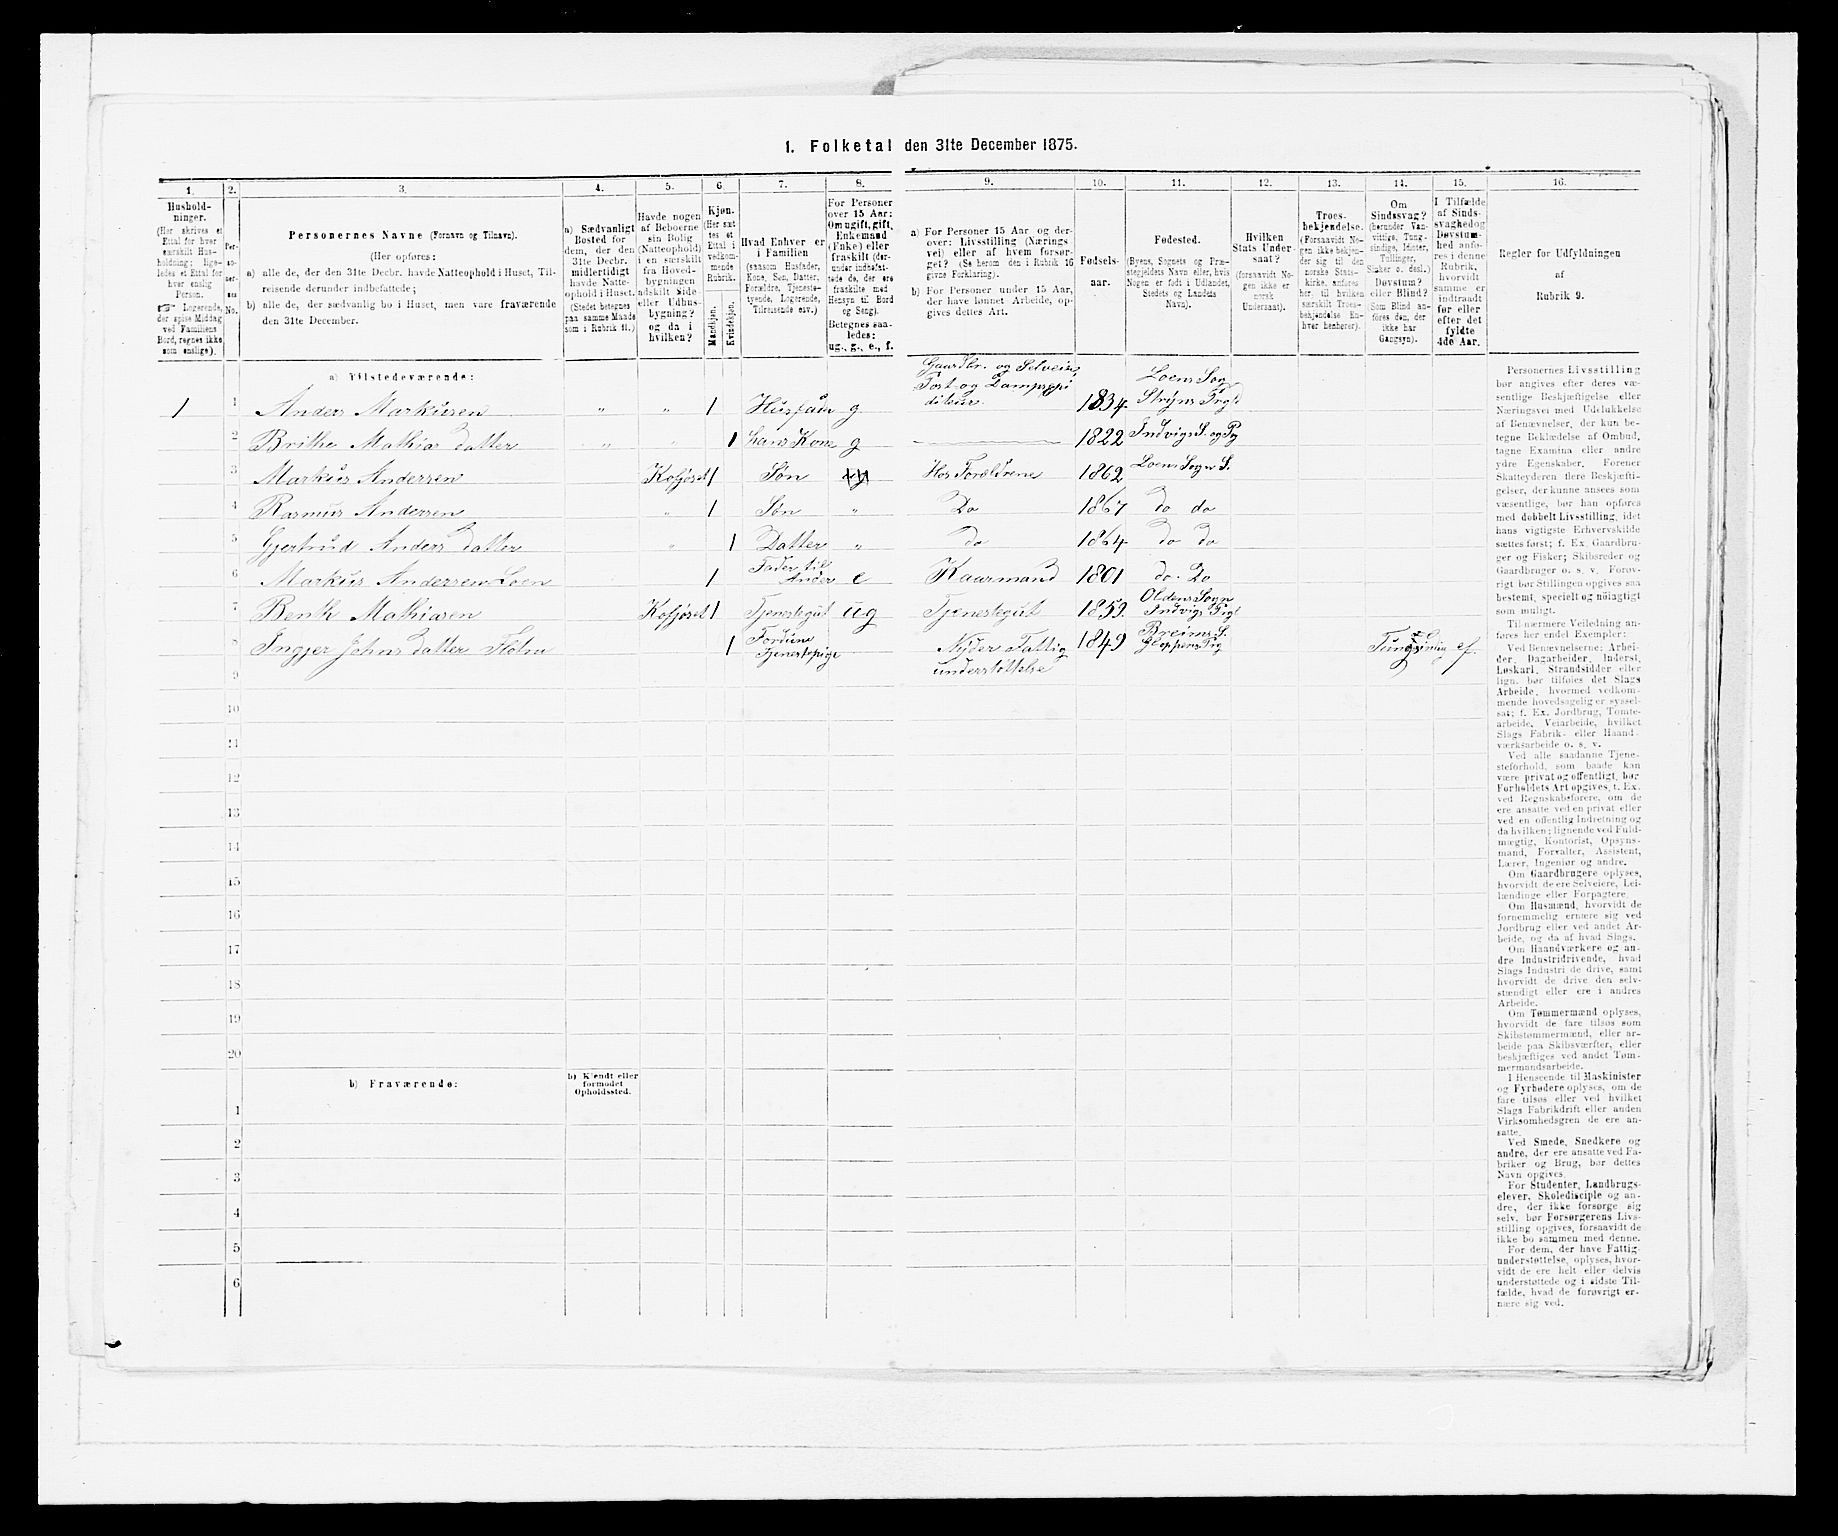 1. Folketal den 31te December 1875.
1. 2. 3. 4. 5. 6. 7. 8. 9. 10. 11. 12. 13. 14. 15. 16.
Hushold-
ninger.
(Her skrives et
Ettal for hver
særskilt Hus-
holdning; lige-
ledes et Ettal for
hver enslig
Person.
☞ Logerende,
der spise Middag
ved Familiens
Bord, regnes ikke
som enslige).
Per-
so-
ner-
nes
No.
Personernes Navne (Fornavn og Tilnavn).
(Her opføres:
a) alle de, der den 31te Decbr. havde Natteophold i Huset, Til-
reisende derunder indbefattede;
b) alle de, der sædvanlig bo i Huset, men vare fraværende
den 31te December.
a) Sædvanligt
Bosted for
dem, der den
31te Decbr.
midlertidigt
havde Natte-
ophold i Huset.
(Stedet betegnes
paa samme Maade
som i Rubrik 11.)
Havde nogen
af Beboerne
sin Bolig
(Natteophold)
i en særskilt
fra Hoved-
bygningen
adskilt Side-
eller Udhus-
bygning?
og da i
hvilken?
Kjøn.
(Her sæt-
tes et
Ettal i
vedkom-
mende
Rubrik.
Mandkjøn.
Kvindekjøn.
Hvad Enhver er
i Familien
(saasom Husfader,
Kone, Søn, Datter,
Forældre, Tjeneste-
tyende, Logerende,
Tilreisende osv.)
For Personer
over 15 Aar:
Om ugift, gift,
Enkemand
(Enke) eller
fraskilt (der-
under indbefat-
tede de, der ere
fraskilte med
Hensyn til Bord
og Seng).
Betegnes saa-
ledes:
ug., g., e., f.
a) For Personer 15 Aar og der-
over: Livsstilling (Nærings-
vei) eller af hvem forsør-
get? (Se herom den i Rubrik 16
givne Forklaring).
b) For Personer under 15 Aar,
der have lønnet Arbeide, op-
gives dettes Art.
Fødsels-
aar.
Fødested.
(Byens, Sognets og Præ-
stegjeldets Navn eller, hvis
Nogen er født i Udlandet,
Stedets og Landets
Navn).
Hvilken
Stats Under-
saat?
(forsaavidt No-
gen ikke er
norsk
Undersaat).
Troes-
bekjendelse.
(Forsaavidt No-
gen ikke bekjen-
der sig til den
norske Stats-
kirke, anføres
her, til hvilken
særskilt Troes-
bekjendelse En-
hver henhører).
Om
Sindssvag?
(herunder Van-
vittige, Tung-
sindige, Idioter,
Tullinger,
Sinker o. desl.)
Døvstum?
eller Blind?
Som Blind an-
føres den, der
ikke har
Gangsyn).
I Tilfælde
af Sinds-
svaghed og
Døvstum-
hed anfø-
res i denne
Rubrik,
hvorvidt
samme er
indtraadt
før eller
efter det
fyldte
4de Aar.
Regler for Udfyldningen
af
Rubrik 9.
a) Tilstedeværende:
1 1 Anders Markusen " " 1 Husfader g Gaardbr. og Selveier, Post- og Dampexpi diteur. 1834. Loens Sogn Stryns Prgl
2 Brithe Mathias datter " " 1 hans Kone g 1822 Indvigs S. og Pg
3 Markus Andersen Kofjøset 1 Søn Hos Forældrene 1862 Loens Sogn S.
4 Rasmus Andersen " 1 Søn " Do 1867 do do
5 Gjertrud Anders datter " 1 Datter " do 1864 do do
6 Markus Andersen Loen 1 Fader til Ander e Kaarmand 1801 do. Do
7 Benth Mathiasen Kofjøset 1 Tjenestegut ug Tjenestegut 1859. Oldens Sogn Indvigs Prgl
8 Ingjer Johns datter 1 Tjenestepige Nyder Fattig understøttelse 1849 Breims S. Gloppens Prg Tungsindig ef.
9
10
11
12
13
14
15
16
17
18
19
20
b) Fraværende:
b) Kjendt eller
formodet
Opholdssted.
1
2
3
4
5
6
Personernes Livsstilling
bør angives efter deres væ-
sentlige Beskjæftigelse eller
Næringsvei med Udelukkelse
af Benævnelser, der kun be-
tegne Beklædelse af Ombud,
tagne Examina eller andre
ydre Egenskaber. Forener
Skatteyderen flere Beskjæfti-
gelser, der kunne ansees som
væsentlige, bør han opføres
med dobbelt Livsstilling, idet
hans vigtigste Erhvervskilde
sættes først; f. Ex. Gaardbru-
ger og Fisker; Skibsreder og
Gaardbruger o. s. v. Forøv-
rigt bør Stillingen opgives saa
bestemt, specielt og nøiagtigt
som muligt.
Til nærmere Veiledning an-
føres her endel Exempler:
Ved Benævnelserne: Arbei-
der, Dagarbeider, Inderst,
Løskarl, Strandsidder eller
lign. bør tilføies det Slags
Arbeide, hvormed vedkom-
mende hovedsagelig er syssel-
sat; f. Ex. Jordbrug, Tomte-
arbeide, Veiarbeide, hvilket
Slags Fabrik- eller Haand-
værksarbeide o. s. v.
Ved alle saadanne Tjene-
steforhold, som baade kan
være privat og offentligt, bør
Forholdets Art opgives, f. Ex.
ved Regnskabsførere, om de
ere ansatte ved en privat eller
ved en offentlig Indretning og
da hvilken; lignende ved Fuld-
mægtig, Kontorist, Opsyns-
mand, Forvalter, Assistent,
Lærer, Ingeniør og andre.
Om Gaardbrugere oplyses,
hvorvidt de ere Selveiere, Lei-
lændinge eller Forpagtere.
Om Husmænd, hvorvidt de
fornemmelig ernære sig ved
Jordbrug eller ved andet Ar-
beide, og da af hvad Slags.
Om Haandværkere og an-
dre Industridrivende, hvad
Slags Industri de drive, samt
hvorvidt de drive den selv-
stændigt eller ere i andres
Arbeide.
Om Tømmermænd oplyses,
hvorvidt de fare tilsøs som
Skibstømmermænd, eller ar-
beide paa Skibsværfter, eller
beskjæftiges ved andet Tøm-
mermandsarbeide.
I Henseende til Maskinister
og Fyrbødere oplyses, om de
fare tilsøs eller ved hvilket
Slags Fabrikdrift eller anden
Virksomhedsgren de ere an-
satte.
Ved Smede, Snedkere og
andre, der ere ansatte ved Fa-
briker og Brug, bør dettes
Navn opgives.
For Studenter, Landbrugs-
elever, Skoledisciple og an-
dre, der ikke forsørge sig
selv, bør Forsørgerens Livs-
stilling opgives, forsaavidt de
ikke bo sammen med denne.
For dem, der have Fattig-
understøttelse, oplyses, hvor-
vidt de ere helt eller delvis
understøttede og i sidste Til-
fælde, hvad de forøvrigt er-
nære sig ved.